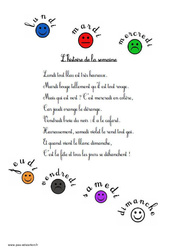 lundi
mardi
mercredi
L'histoire de la semaine
Lundi tout bleu est très heureux,
Mardi bouge tellement qu'il est tout rouge.
Mais qui est vert ? C'est mercredi en colère,
Car jeudi orange le dérange.
Vendredi broie du noir : il a le cafard.
Heureusement, samedi violet le rend tout gai.
Et quand vient le blanc dimanche,
C'est la fête et tous les jours se déhanchent !
jeudi
vendredi
samedi
dimanche